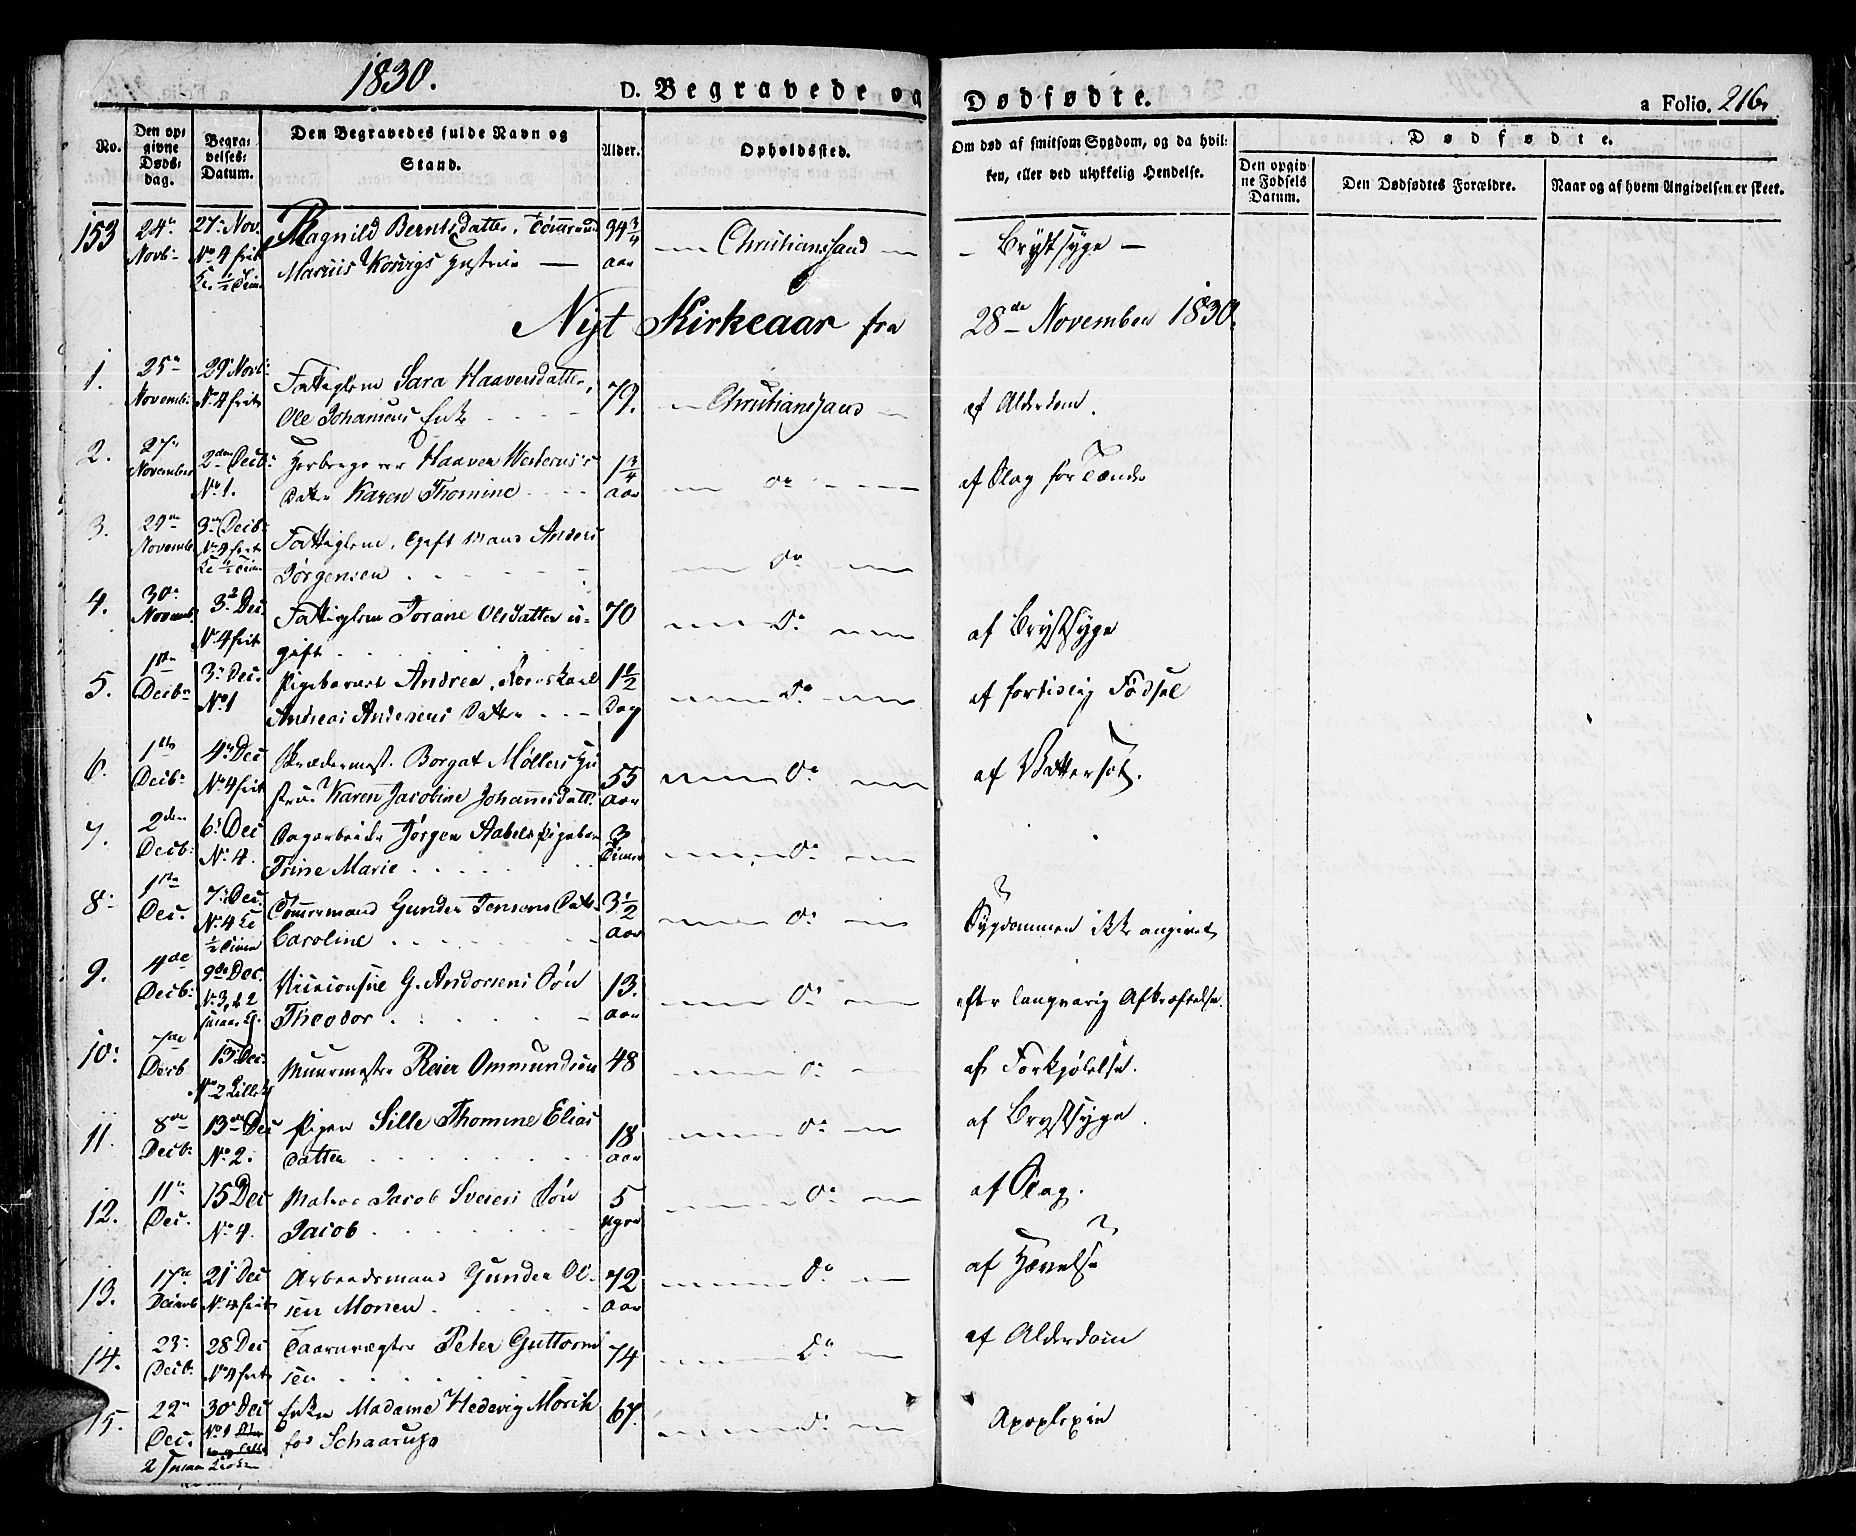 1830.
D. Begravede og Dødfødte.
a Folio. 216.
No.
Den opgivne Døds-dag.
Begravelses-Datum.
Den Begravedes fulde Navn og Stand.
Alder.
Opholdssted.
Om død af smitsom Sygdom, og da hvilken, eller ved ulykkelig Hendelse.
Dødfødte.
Den opgivne Fødsels Datum.
Den Dødfødtes Forældre.
Naar og af hvem Angivelsen er skeet.
153 24 Novb. 27 Nov. No 4 frit Ragnild Berntsdatter, Tømmermd
Marcus Korvigs Hustrue 34 3/4 aar Christianssand Brystsyge
Nyt Kirkeaar fra 28de November 1830.
1. 25 Novemb. 29 Novb. No 4 frit Fattiglem Sara Haaversdatter,
Ole Johansens Enke 79. Christianssand af Alderdom.
2. 27 November 2den Decb. No 1. Haaven Westerus's
Datter Karen Thomine 1 3/4 aar Do af Slag for Tænder
3. 29 Novemb 3 Decb. No 4 frit Fattiglem, Gift Mand Anders
Jørgensen Do
4. 30 Novemb 3 Dec No 4 frit Fattiglem Torane Olsdatter u-
gift 70 Do af Brystsyge
5. 1ste Decbr 3 Dec. No 1 Pigebarnet Andrea,
Andreas Andersens Datter 1 1/2 Dag Do af fortidlig Fødsel
6. 1ste Decbr 4 Dec No 4 frit Skrædermest. Borgat Møllers Hu
strue Karen Jacobine Johannesdatt. 55 aar Do af Vattersot.
7. 2den Decb. 6 Dec No 4. Dagarbeider Jørgen Aabels Pigebarn
Trine Marie 3 Timer Do
8. 1ste Dec. 7 Dec. No 4 Tømermand Gunder Jensens Datt.
Caroline 3 1/2 aar Do Sygdommen ikke angivet
9. 4de Decb. 9de Dec. No 3, G. Andersens Søn
Theodor 13. aar Do efter langvarig Afkræftelse.
10. 7de Decb 13 Dec. No 2 Muurmester Reier Ommundsen 48 Do af Forkjølelse.
11. 8de Decb. 13de Dec No 2. Pigen Sille Thomine Elias
datter 18 aar Do af Brystsyge.
12. 11 Dec. 15 Dec No 4. Matros Jacob Sveiers Søn
Jacob 5 Uger Do af Slag.
13. 17 Decemb 21 Dec No 4 frit Arbeidsmand Gunder Ol-
sen Morien 72 aar Do af Hævelse
14. 23 Decb. 28 Dec No 4 frit Taarnvægter Peter Guttorm
sen 74 Do af Alderdom
15. 22 Dec. 30 Dec No 1 Enke Madame Hedevig Morith
fød Schaarup 67. Do Apoplexie